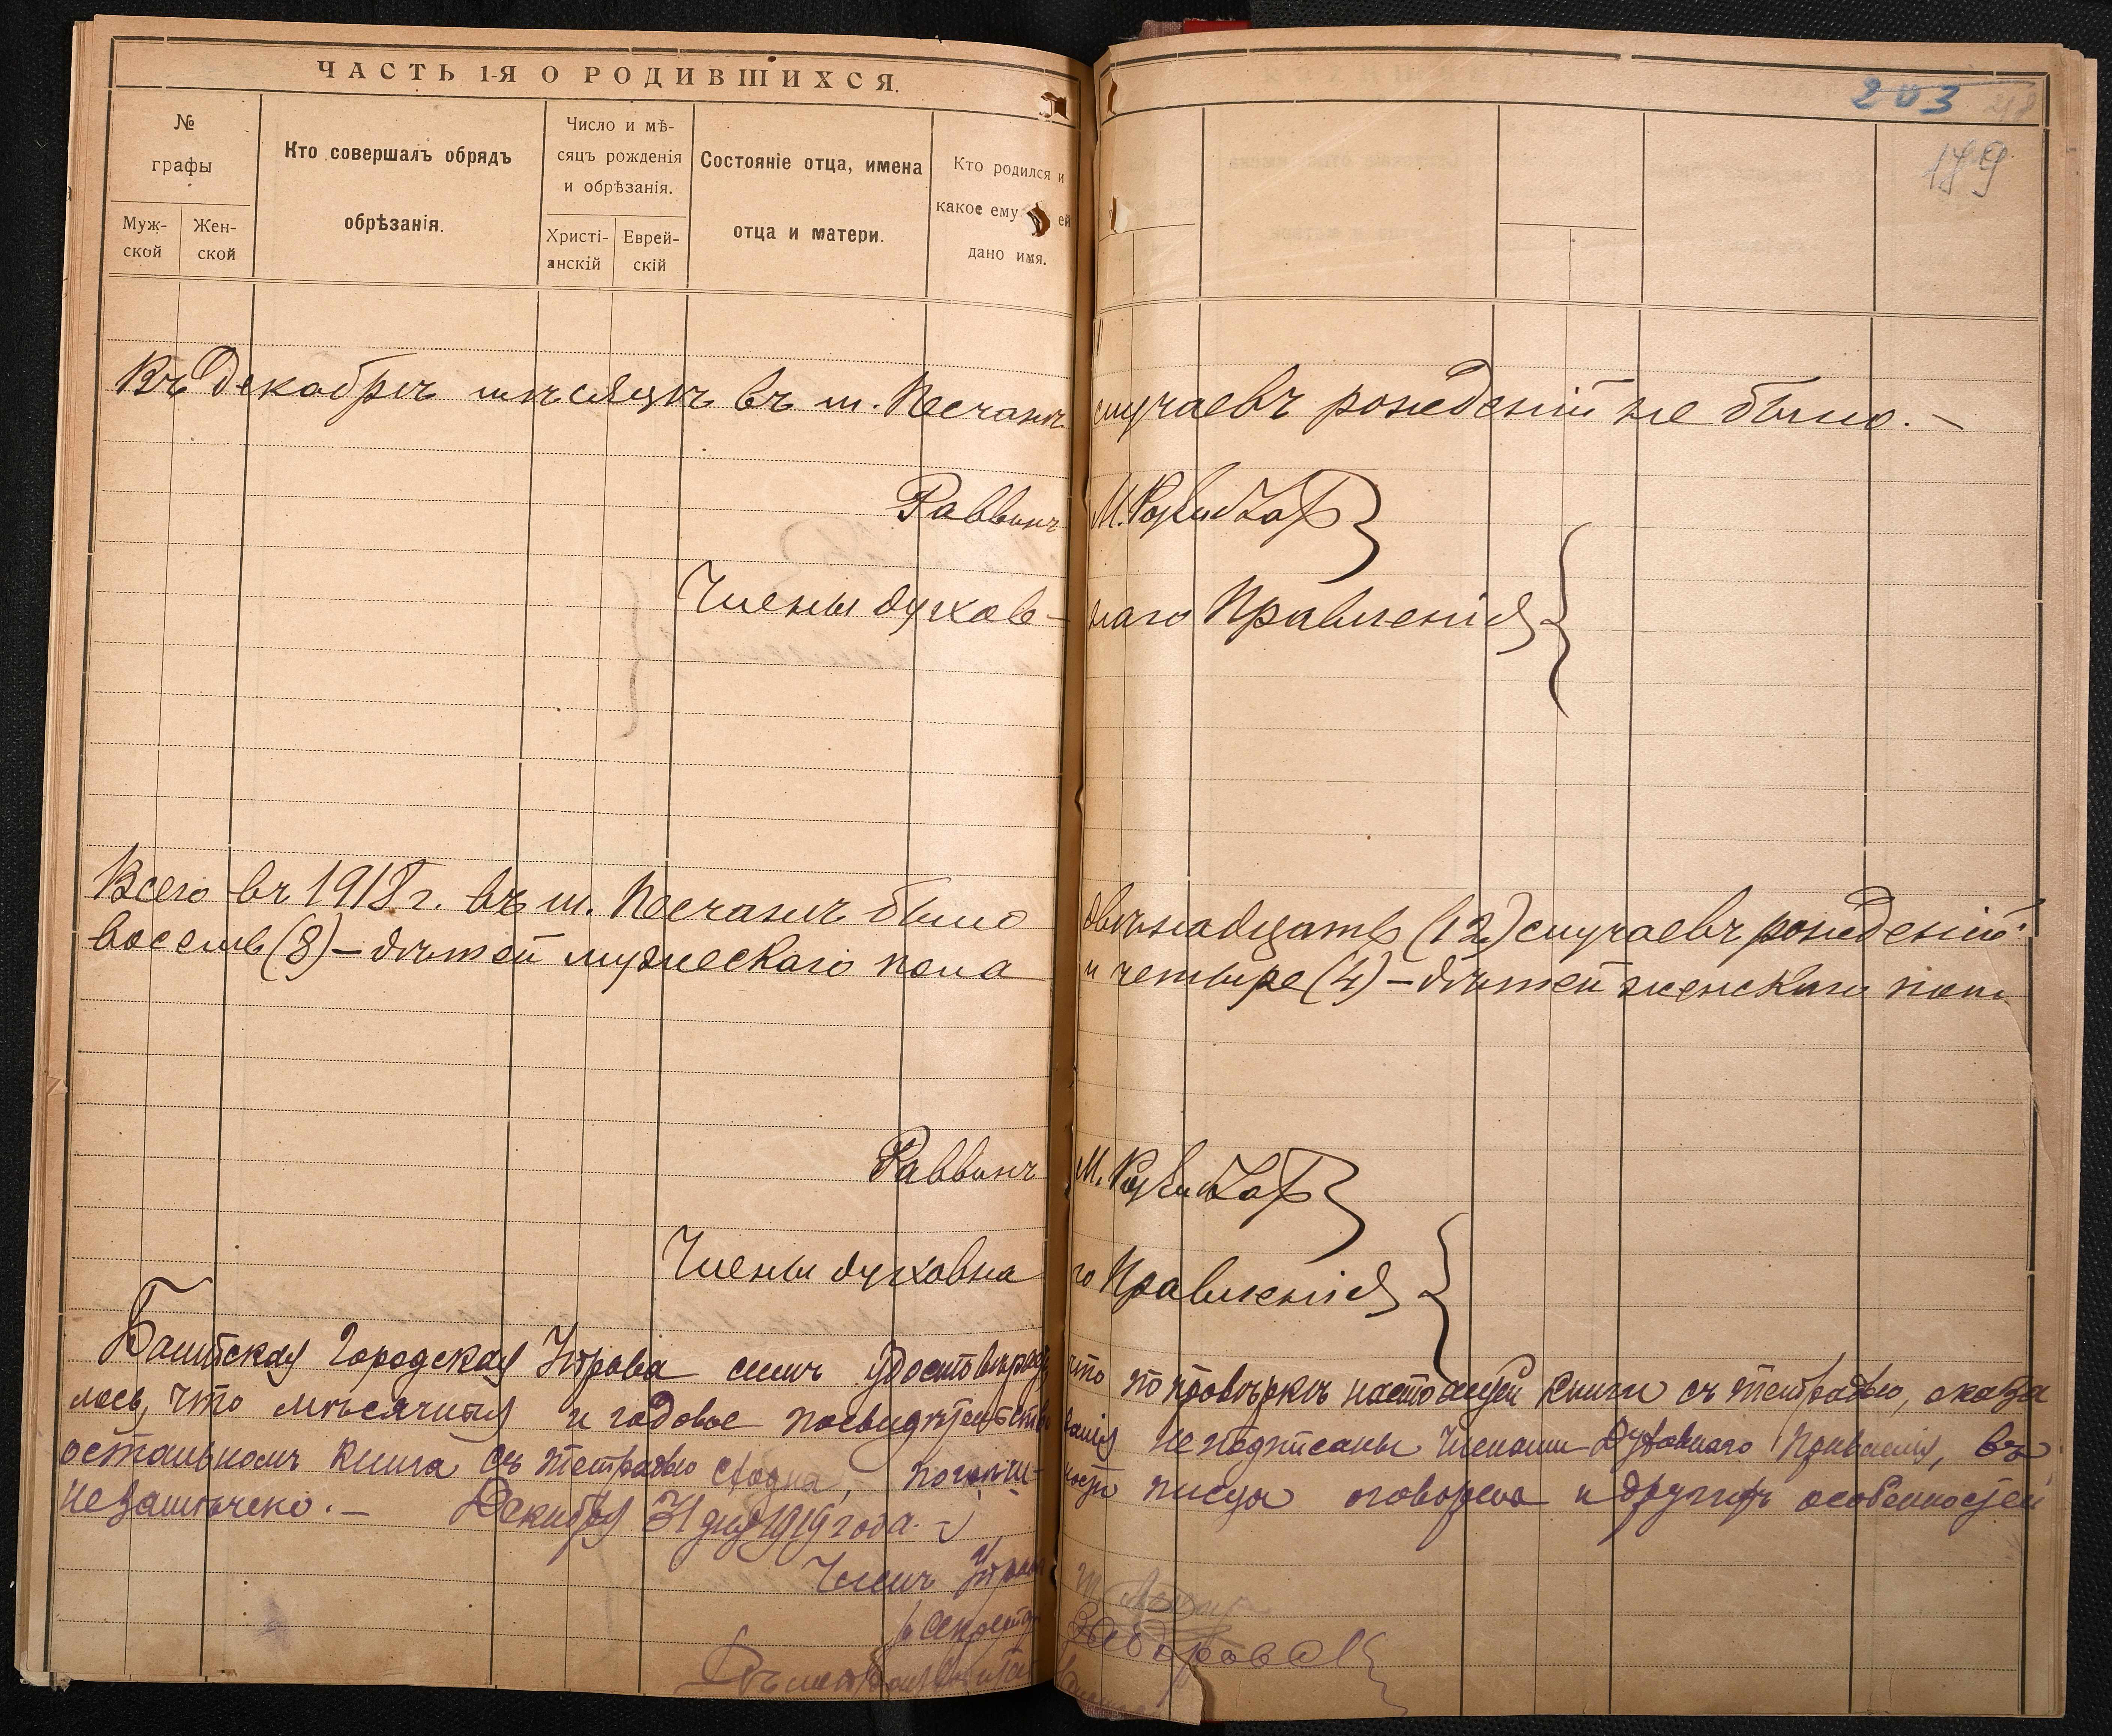 ЧАСТЬ 1-Я О РОДИВШИХСЯ.
203
189
№ графы
Муж-ской
Жен-ской
Кто совершалъ обрядъ обрѣзанія.
Число и мѣ-сяцъ рожденія и обрѣзанія.
Христі-анскій
Еврей-скій
Состояніе отца, имена отца и матери.
Кто родился и какое ему ей дано имя.
Въ Декабрѣ мѣсяцѣ въ м. Песчанѣ случаевъ рожденій не было. —
Раввинъ М.
Члены духов-наго Правленія
Всего въ 1918 г. въ м. Песчанѣ было двѣнадцать (12) случаевъ рожденій
восемь (8) – дѣтей мужескаго пола и четыре (4) – дѣтей женскаго пола
Раввинъ М.
Члены духовна го Правленія
Балтская Городская Управа симъ что по провѣркѣ настоящей книги съ тетрадью, оказа
лось, что мѣсячныя и годовое не подписаны Членами Духовнаго Правленія, въ
остальномъ книга съ тетрадью сходна, писца оговорена и другихъ особенностей
не замѣчено. — Декабря 31 дня 1919 года.
Членъ Управы
Секретарь